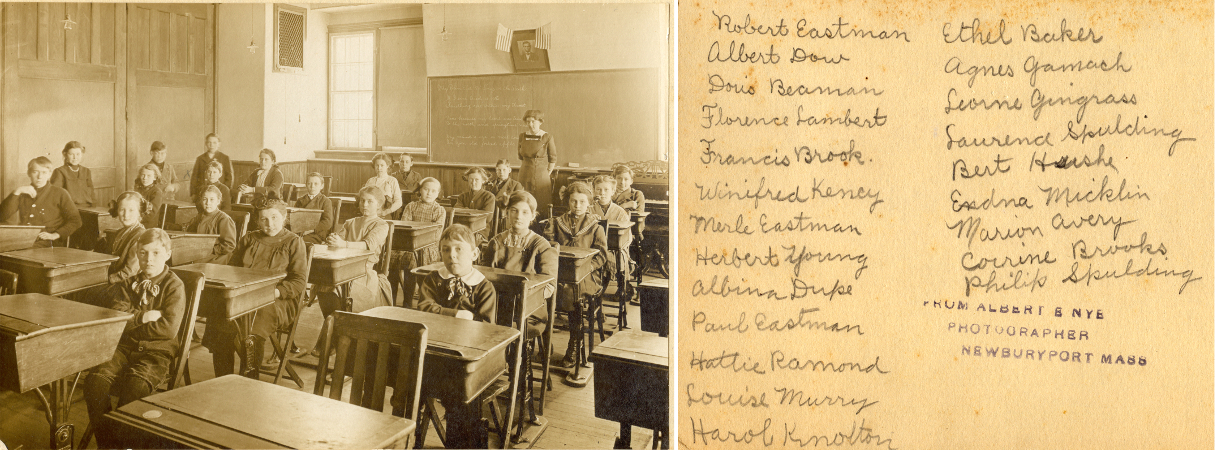 Robert Eastman
Albert Dow
Doris Beaman
Florence Lambert
Francis Brook.
Winifred Kency
Merle Eastman
Herbert Young
Albina Dupe
Paul Eastman
Hattie Ramond
Louise Murry
Harol Knolton
Ethel Baker
Agnes Gamach
Leorne Gingrass
Laurence Spulding
Bert
Exdna Micklin
Marion Avery
Corrine Brooks
Philip Spulding
FROM ALBERT E NYE
PHOTOGRAPHER
NEWBURYPORT MASS